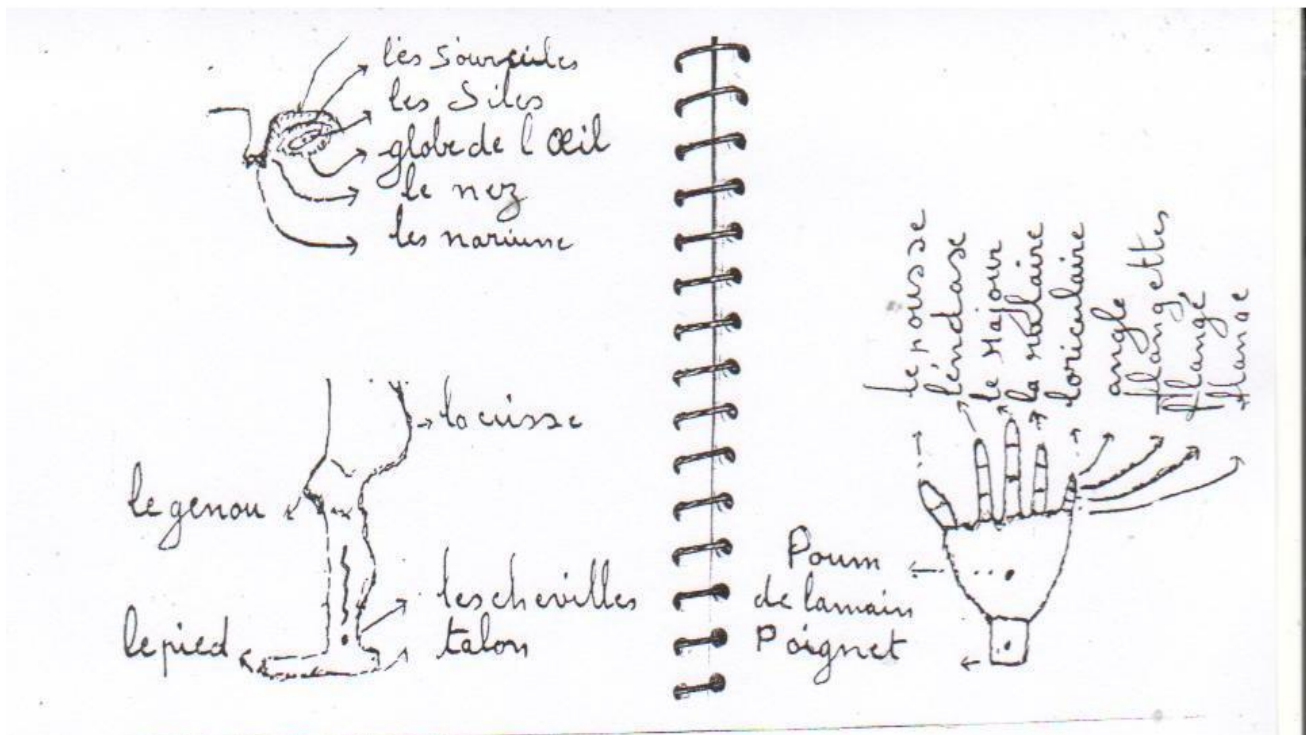 les Sourciles
les Siles
globe de l'Œil
le nez
les nariune
la cuisse
le genou
les chevilles
le pied
talon
le pousse
l'éndase
le Majour
la nolaire
loriculaire
angle
flangettes
flangé
flange
Poum
de lamain
Poignet